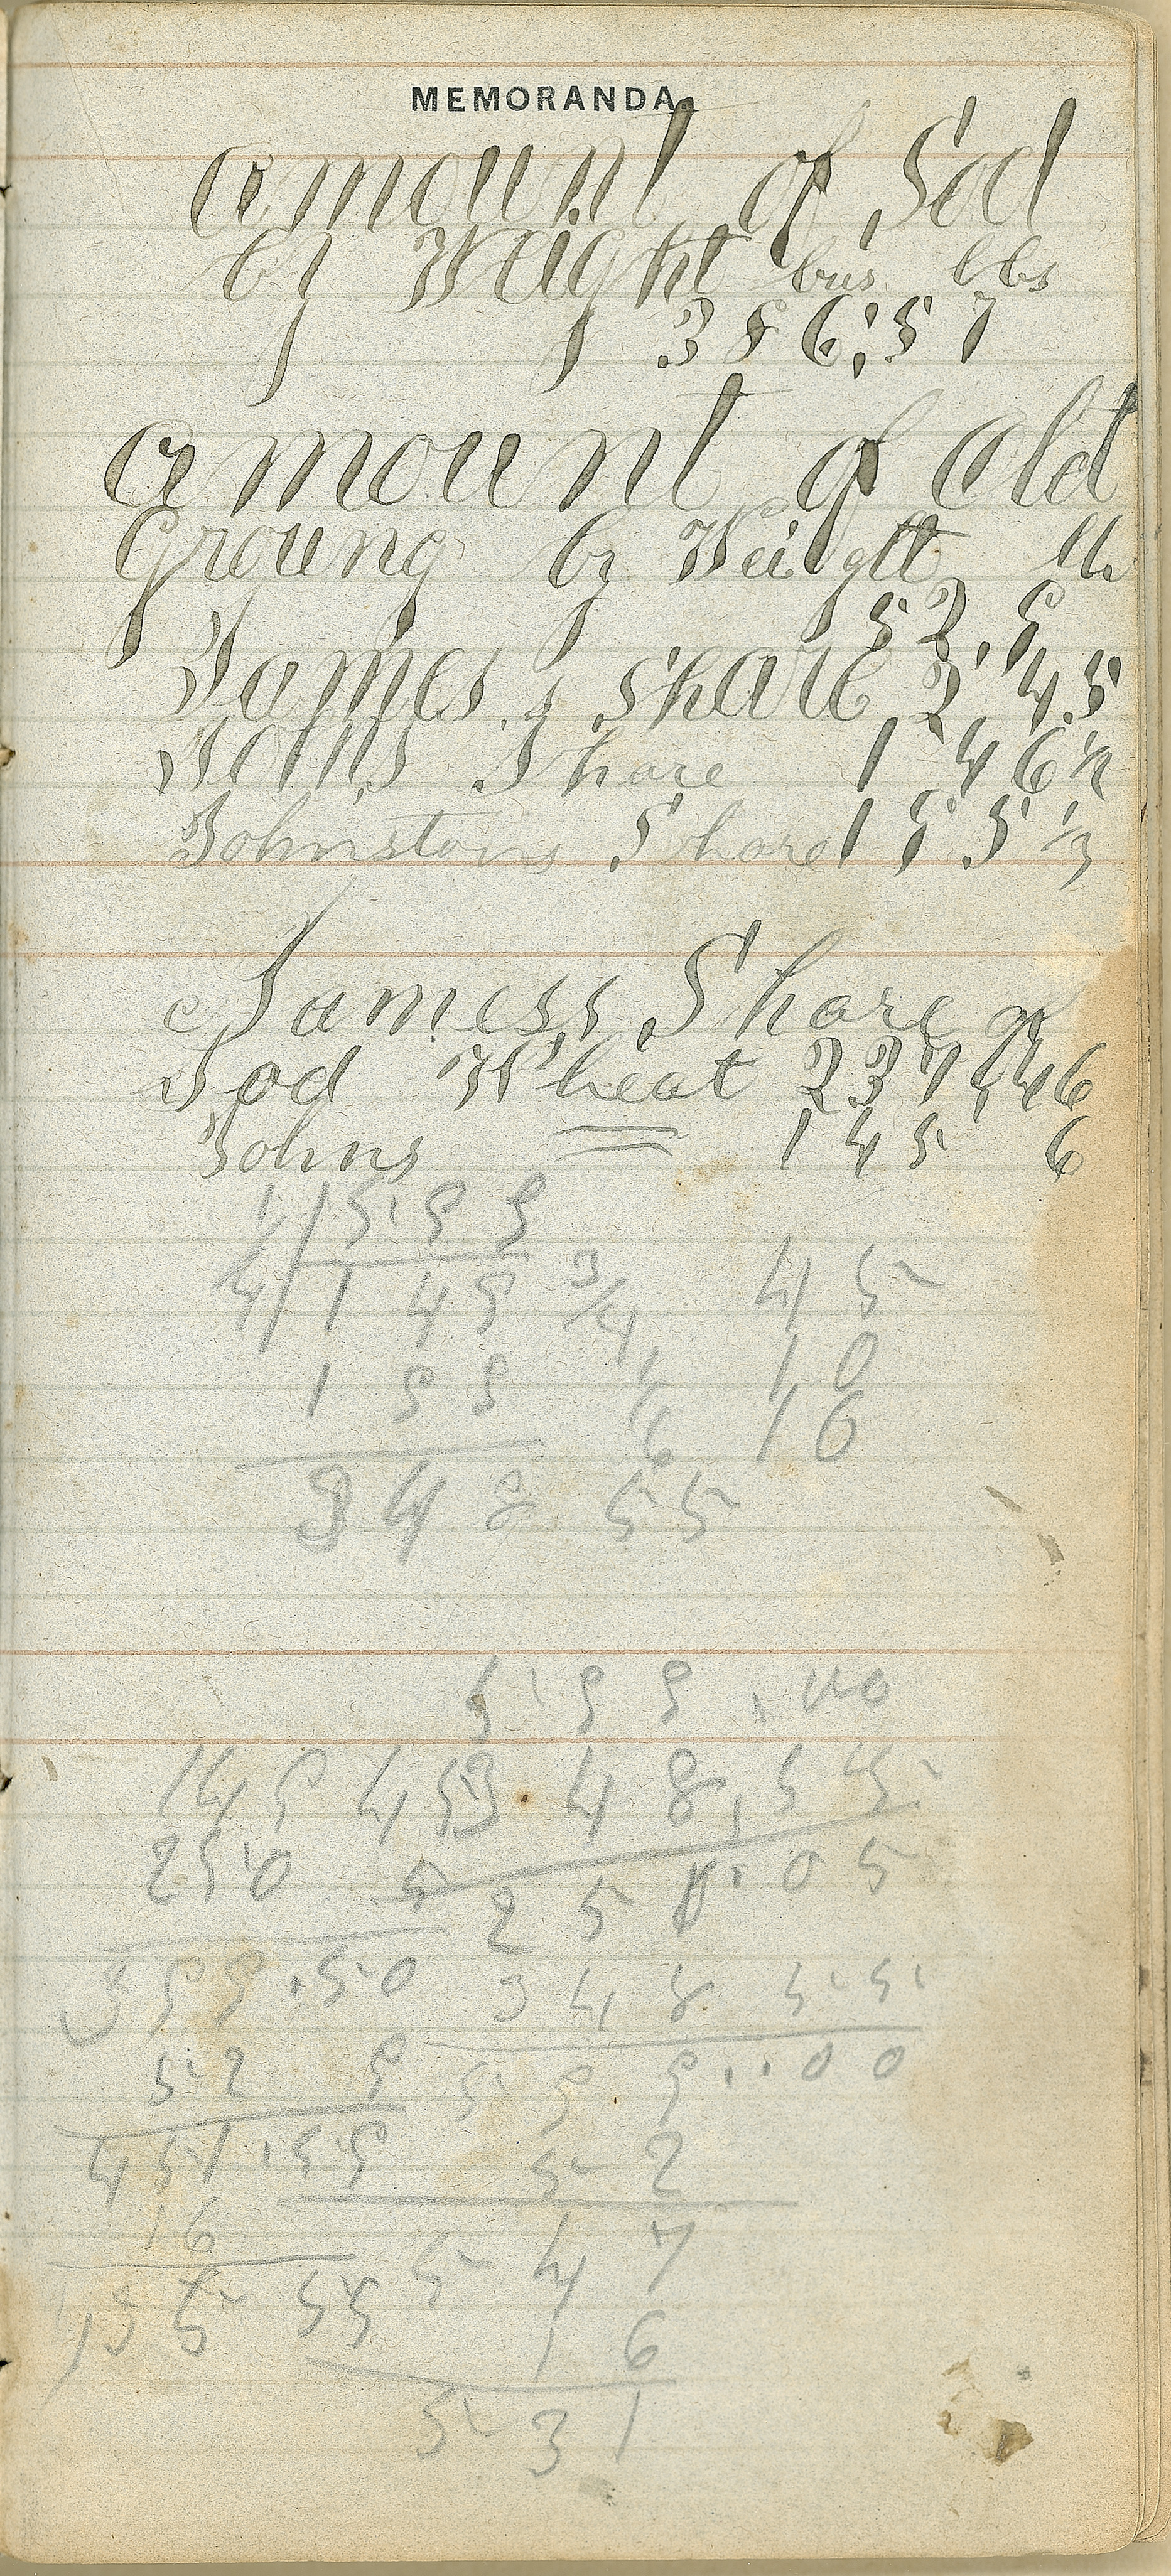 MEMORANDA.
amount of Sod
by Weight bus lbs
386;57
amount of old
Groung by Weight
52.9
James, share 2 45
Johns Share 1 46 1/2
Johnstons Share 1 55 1/3
Jamess Share of
Sod Wheat 237 46
Johns 145 6
1 1 5 9 9
4 1 4 9 3/4 4 5
1 9 9 10
16
3 4 8 55
5 9 9 .
149 45 3 4 8, 5 5
250 5 2 5 0. 0 5
399.50 3 4 8 5 5
52 9 5 9 9 . . 0 0
451.59 5 2
16 5 4 7
55 1 6
5 3 1